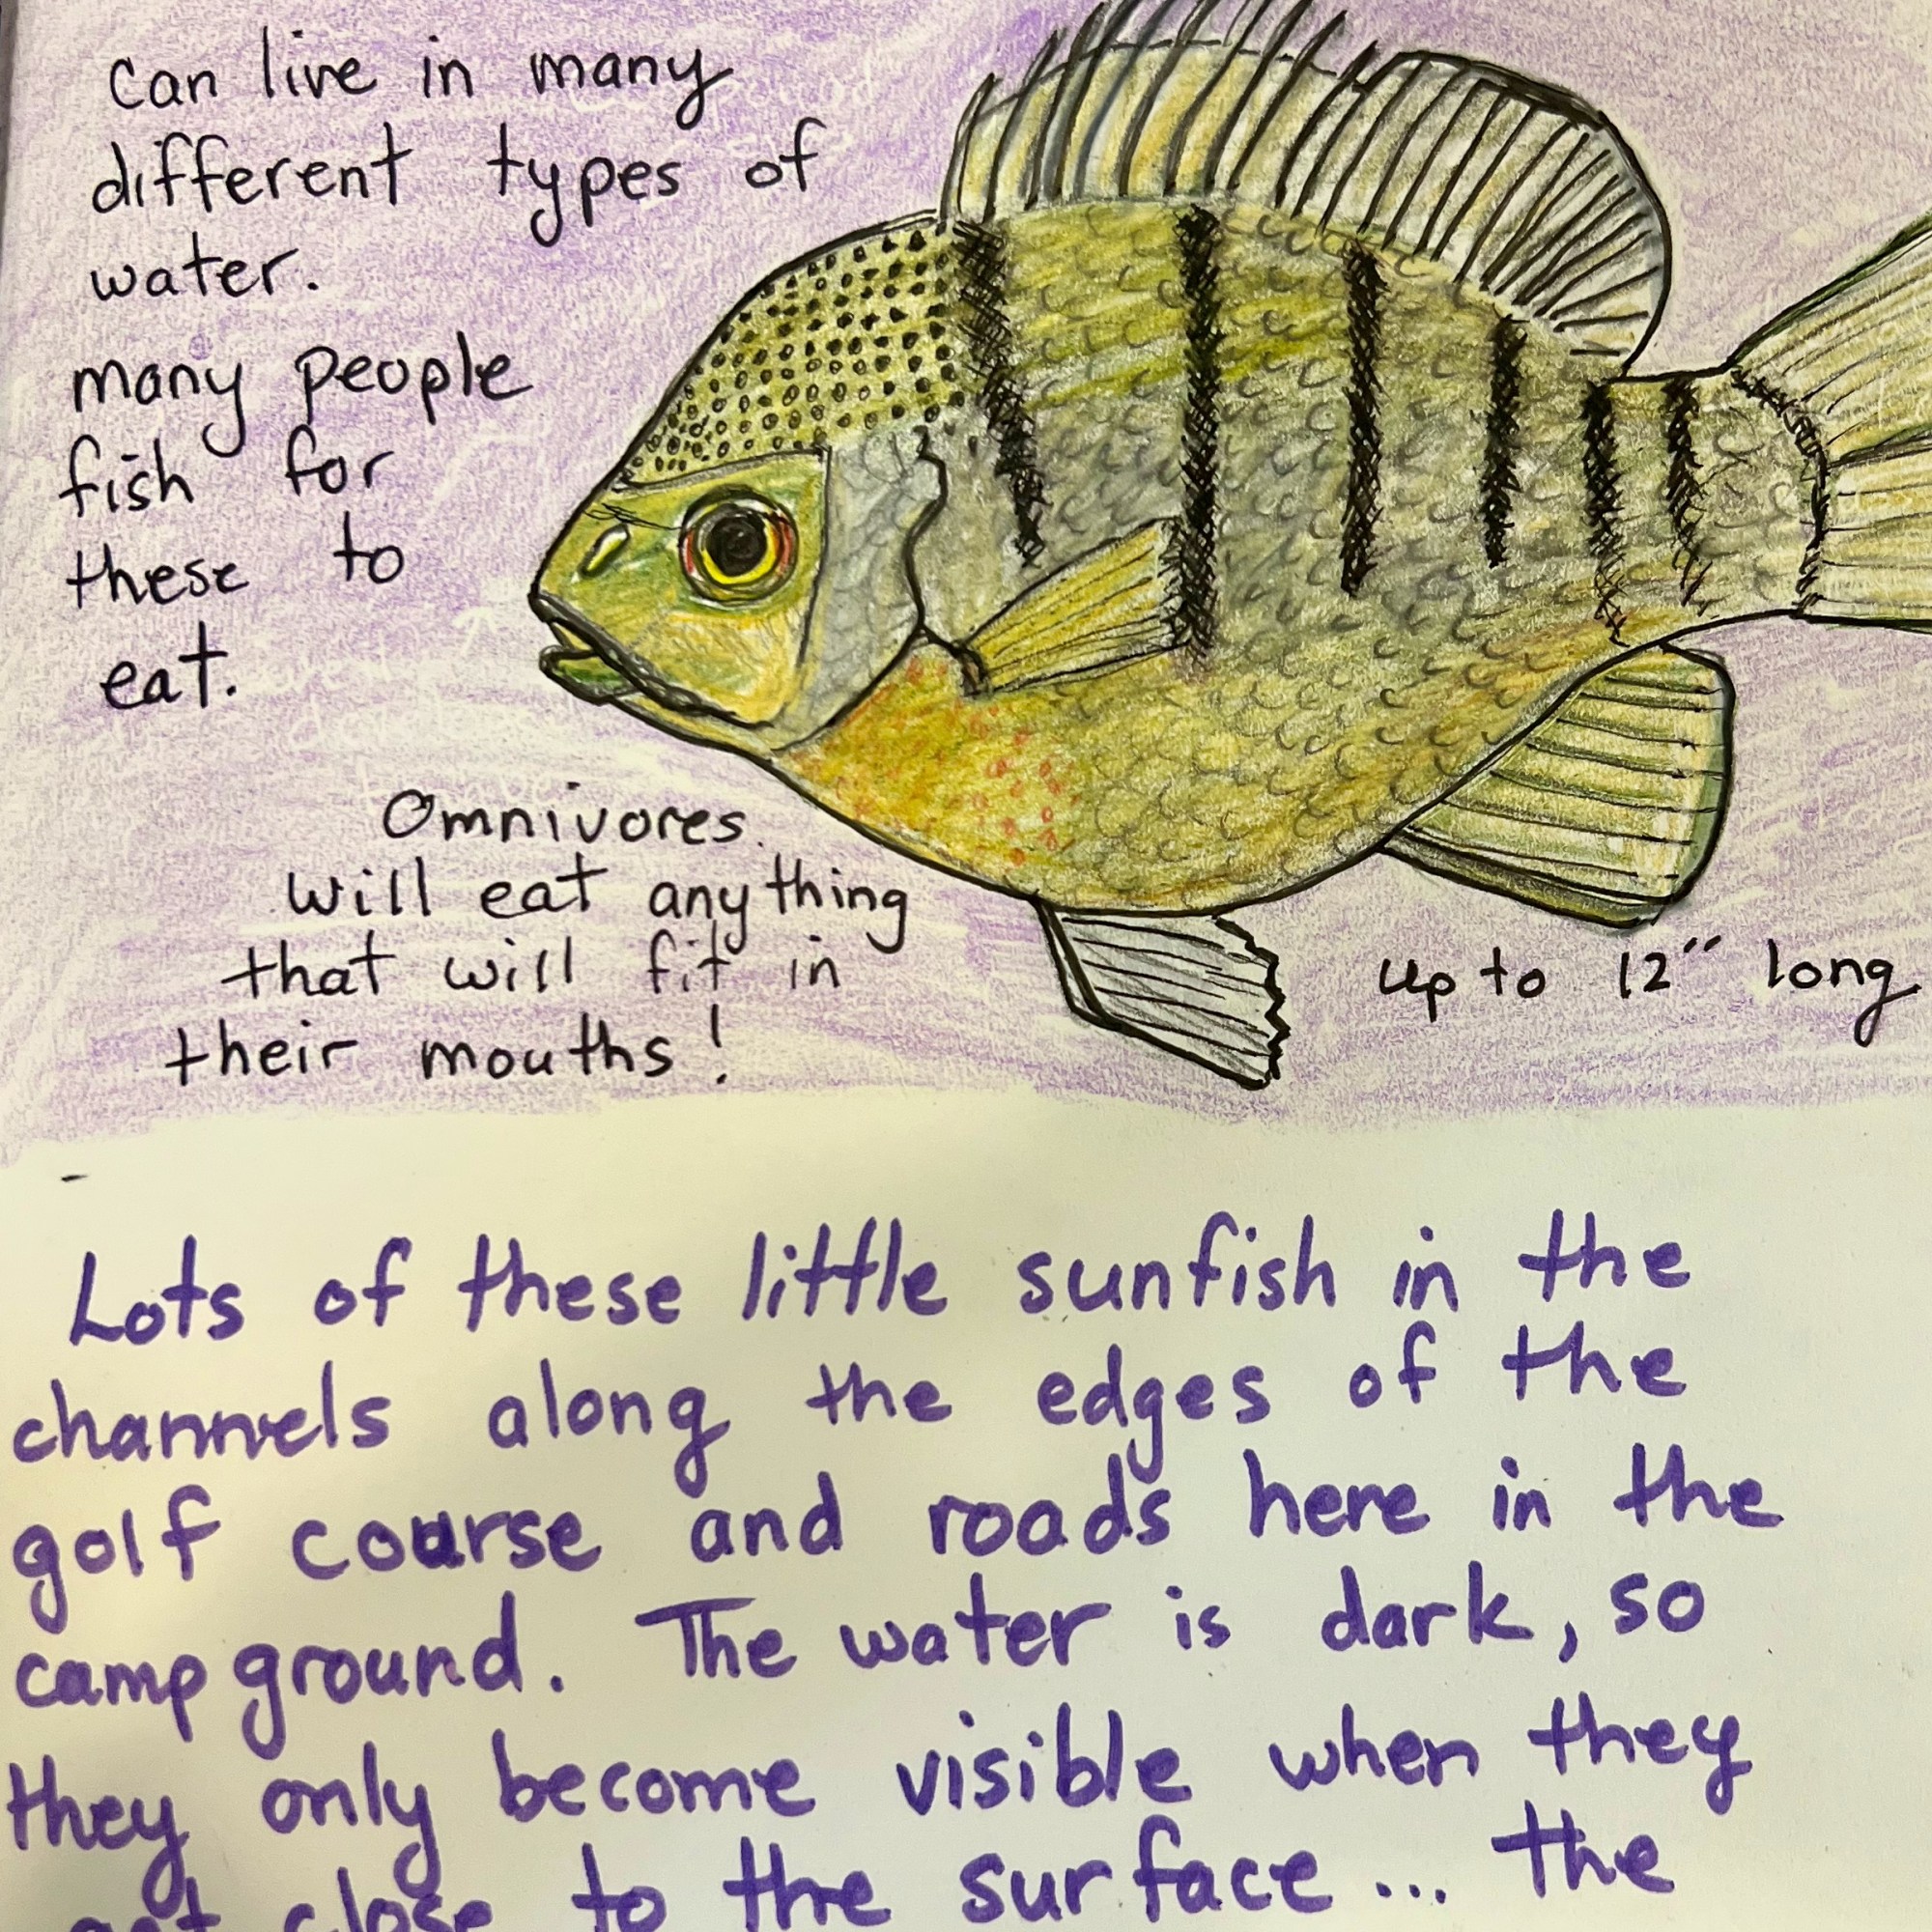 can live in many
different types of
water.
many people
fish for
these to
eat.
Omnivores.
will eat anything
that will fit in
their mouths!
up to 12" long
Lots of these little sunfish in the
channels along the edges of the
golf course and roads here in the
campground. The water is dark, so
they only become visible when they
get close to the surface... the